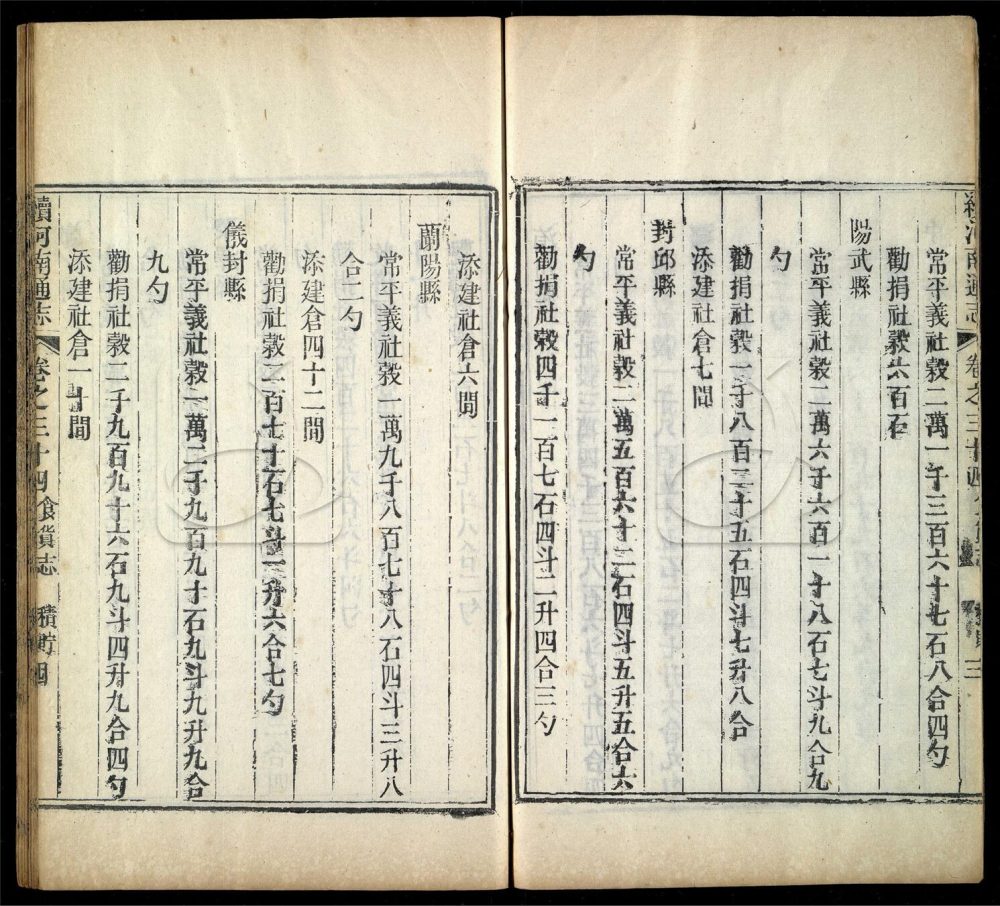 續河南通志 卷之三十四食貨志 積貯 三
常平義社穀二萬一千三百六十七石八合四勺
勸捐社穀六百石
陽武縣
常平義社穀二萬六千六百一十八石七斗九合九
勺
勸捐社穀一千八百三十五石四斗七升八合
添建社倉七間
封邱縣
常平義社穀二萬五百六十二石四斗五升五合六
勺
勸捐社穀四千一百七石四斗二升四合三勺
添建社倉六間
蘭陽縣
常平義社穀一萬九千八百七十八石四斗三升八
合二勺
添建倉四十二間
勸捐社穀二百七十石七斗一升六合七勺
儀封縣
常平義社穀一萬二千九百九十石九斗九升九合
九勺
勸捐社穀二千九百九十六石九斗四升九合四勺
添建社倉一十間
續河南通志 卷之三十四食貨志 積貯 四